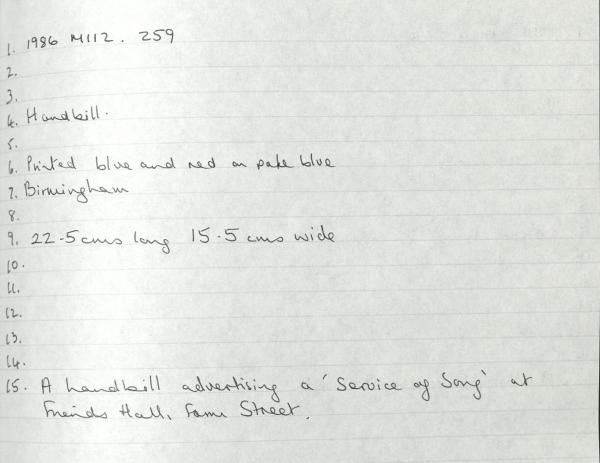 1. 1986 M112. 259
2.
3.
4. Handbill.
5.
6. Printed blue and red on pale blue
7. Birmingham
8.
9. 22.5cms long 15.5 cms wide
10.
11.
12.
13.
14.
15. A handbill advertising a 'Service of Song' at
Friends Hall, Farm Street.